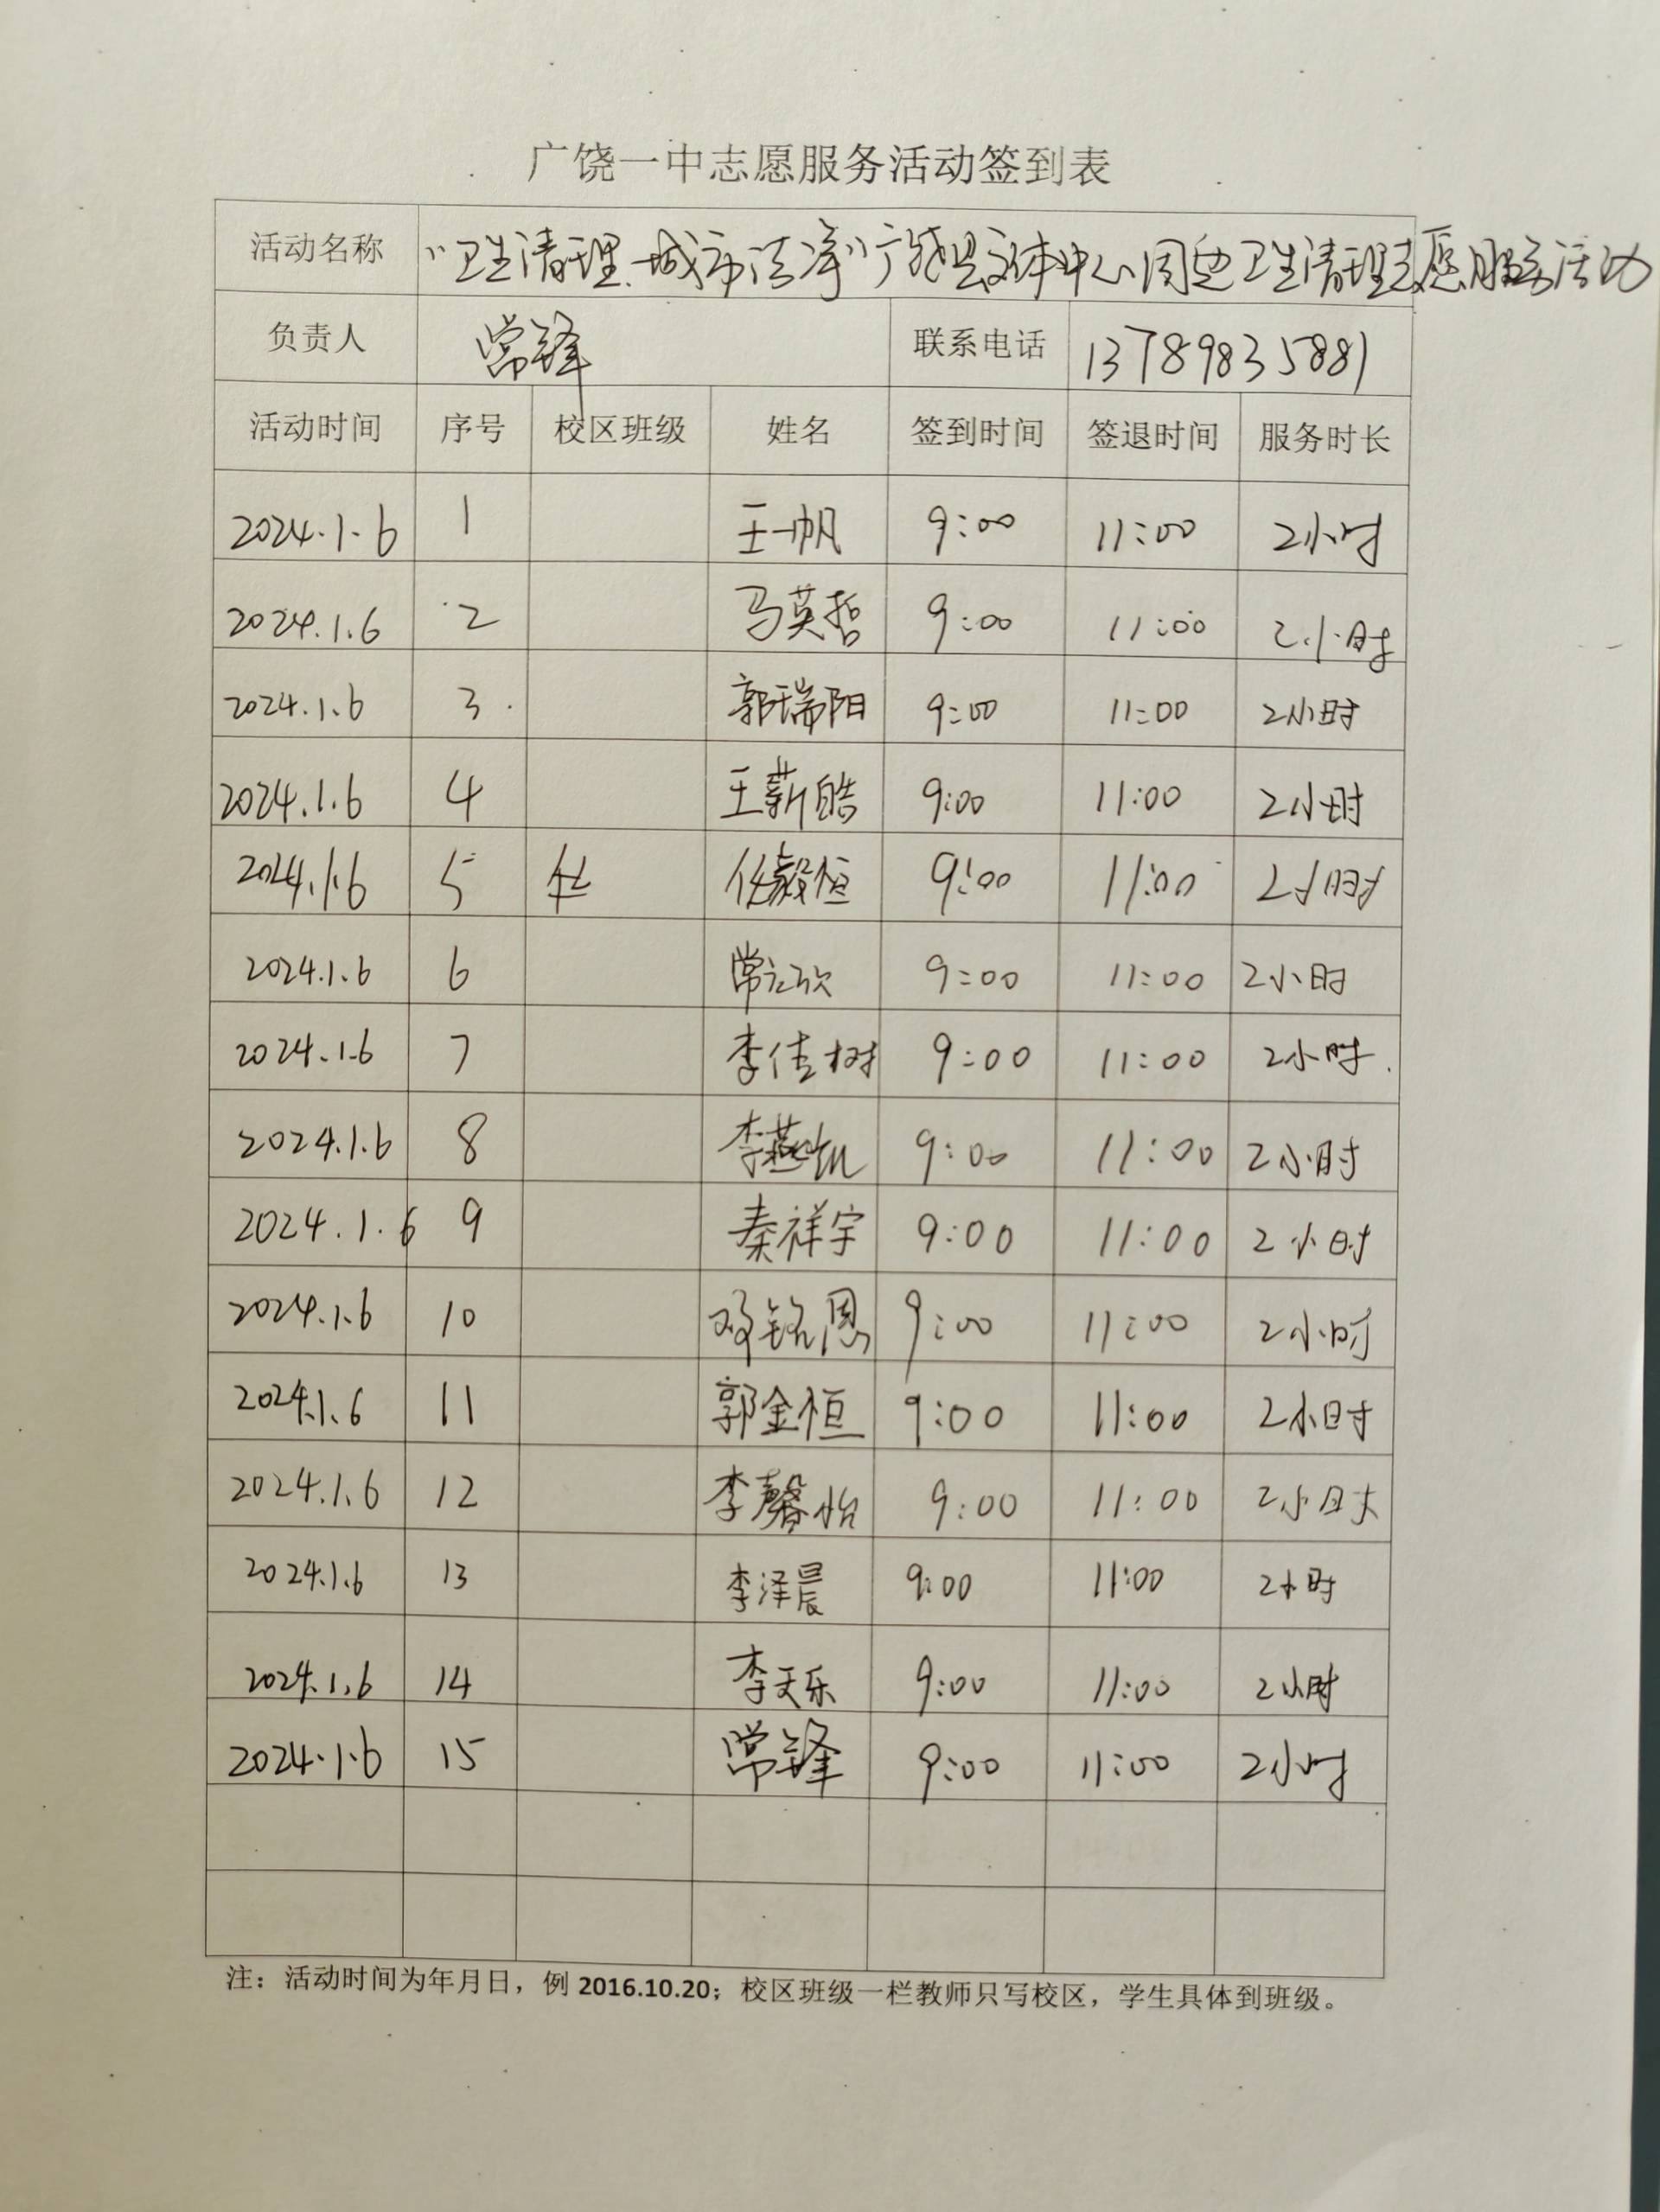 广饶一中志愿服务活动签到表
活动名称 “卫生清理.城市洁净”广饶县文体中心周边卫生清理志愿服务活动
负责人 常锋 联系电话 13789835881
活动时间 序号 校区班级 姓名 签到时间 签退时间 服务时长
2024.1.6 1 王一帆 9:00 11:00 2小时
2024.1.6 2 马英哲 9:00 11:00 2小时
2024.1.6 3 郭瑞阳 9:00 11:00 2小时
2024.1.6 4 王薪皓 9:00 11:00 2小时
2024.1.6 5 任毅恒 9:00 11:00 2小时
2024.1.6 6 常 9:00 11:00 2小时
2024.1.6 7 李佳树 9:00 11:00 2小时
2024.1.6 8 李燕 9:00 11:00 2小时
2024.1.6 9 秦祥宇 9:00 11:00 2小时
2024.1.6 10 邓铭恩 9:00 11:00 2小时
2024.1.6 11 郭金恒 9:00 11:00 2小时
2024.1.6 12 李馨怡 9:00 11:00 2小时
2024.1.6 13 李泽晨 9:00 11:00 2小时
2024.1.6 14 李天乐 9:00 11:00 2小时
2024.1.6 15 常锋 9:00 11:00 2小时
注：活动时间为年月日，例 2016.10.20；校区班级一栏教师只写校区，学生具体到班级。